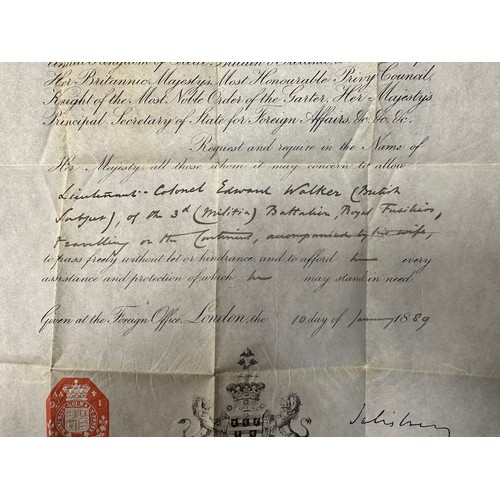 Her Britannic Majesty's Most Honourable Privy Council,
Knight of the Most Noble Order of the Garter, Her Majesty's
Principal Secretary of State for Foreign Affairs, &c. &c. &c.
Request and require in the Name of
Her Majesty, all those whom it may concern to allow
Lieutenant-Colonel Edward Walker (British
Subject), of the 3d (Militia) Battalion, Royal Fusiliers,
travelling on the Continent, accompanied by his wife,
to pass freely without let or hindrance, and to afford him every
assistance and protection of which he may stand in need.
Given at the Foreign Office, London, the 10 day of January 1889
Salisbury